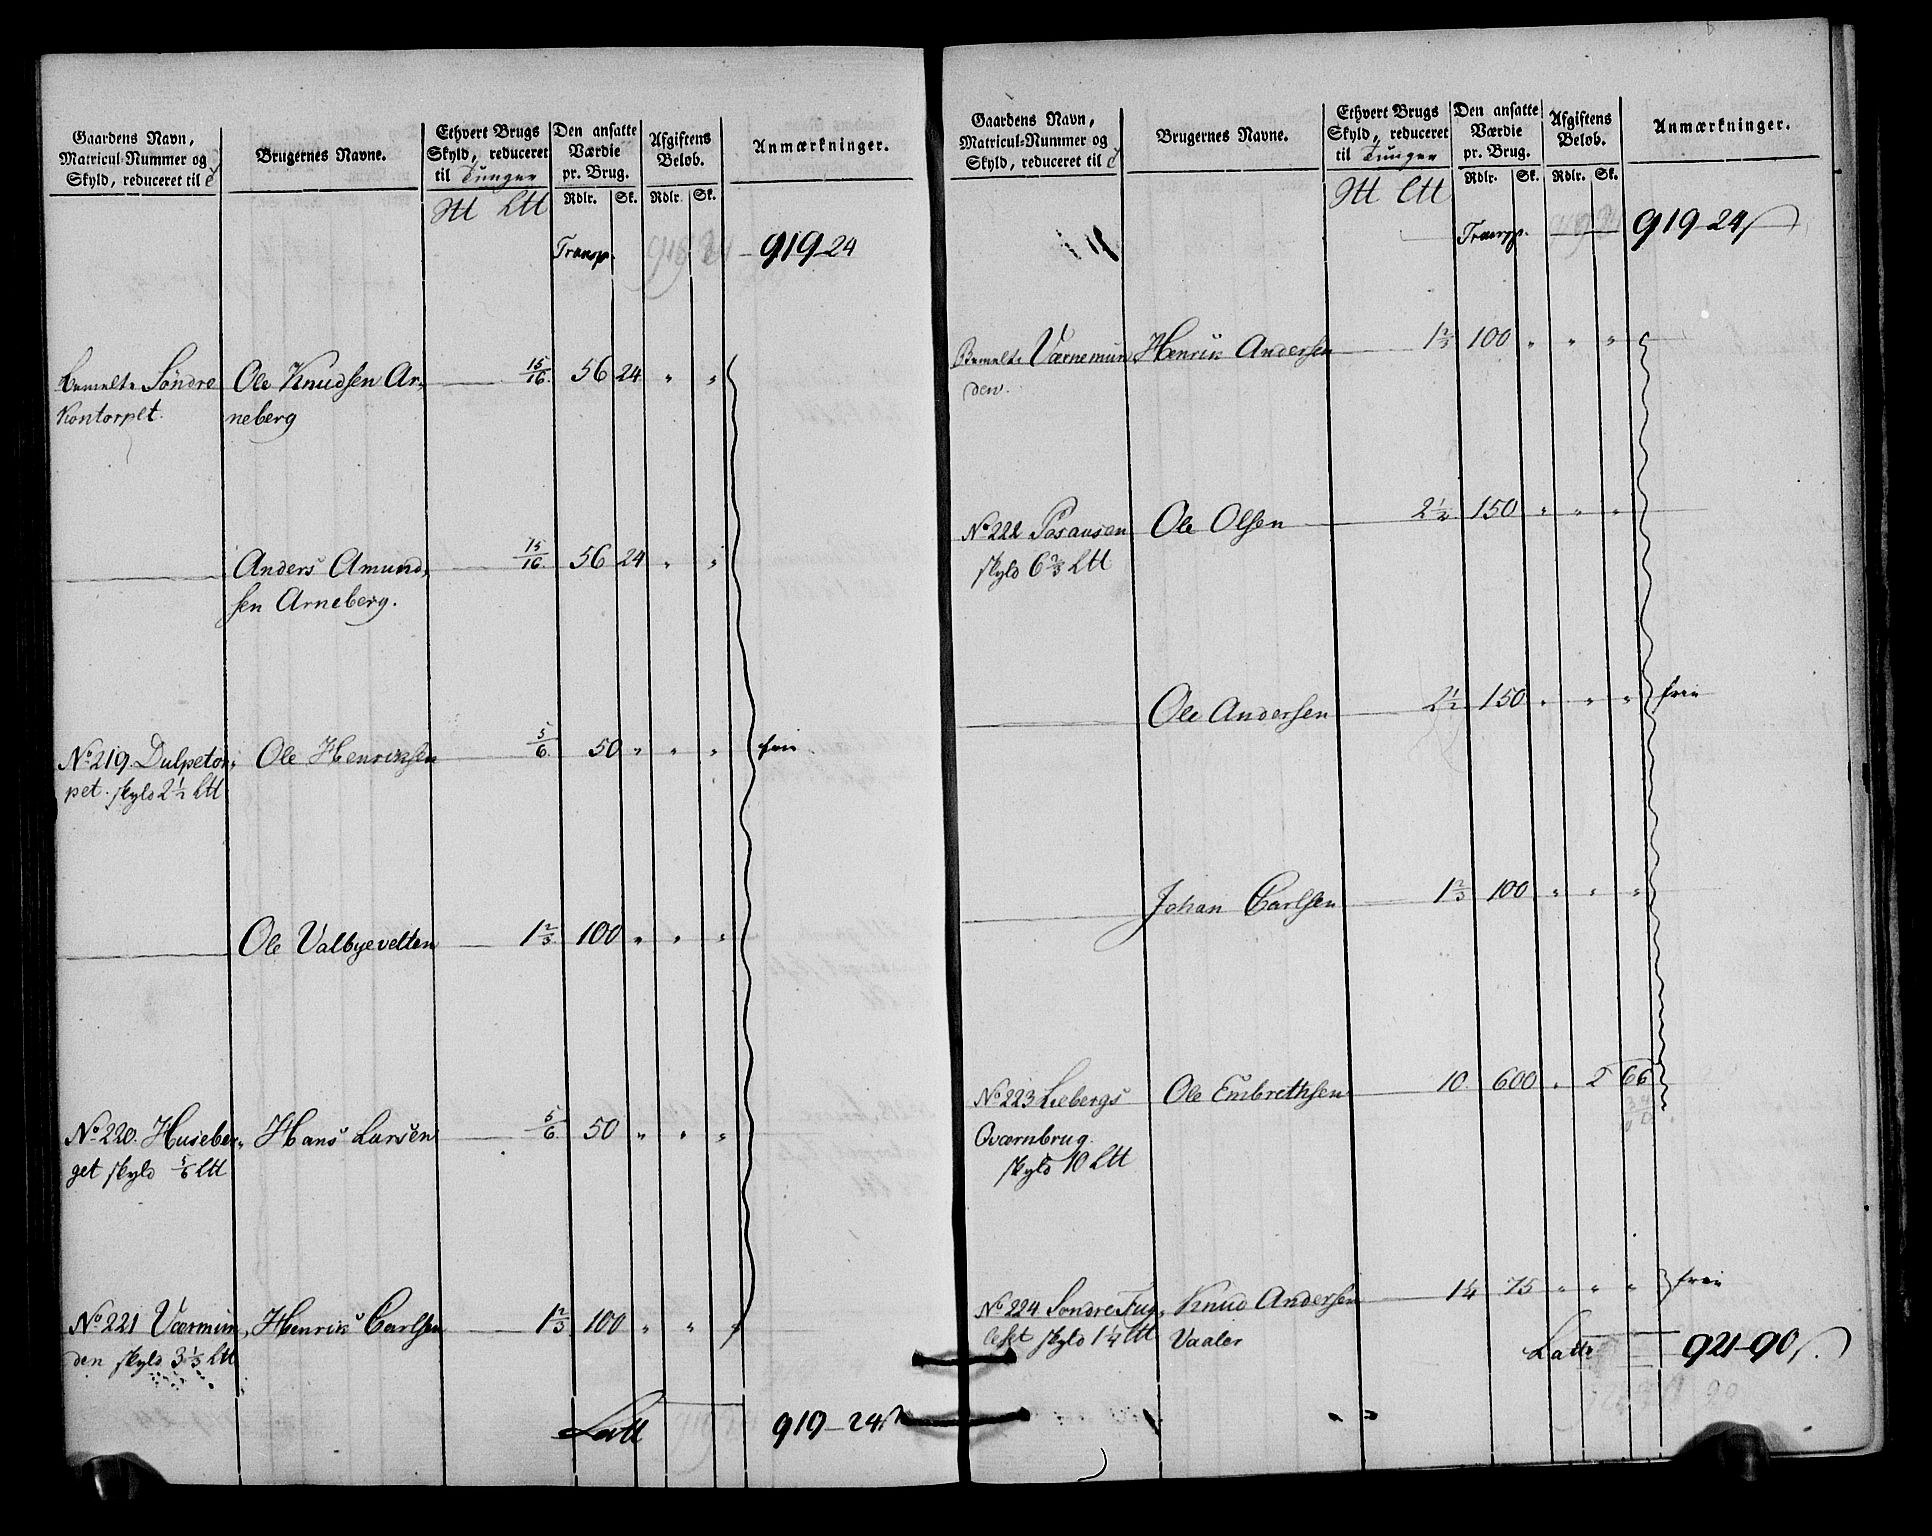 Gaardens Navn,
Matricul-Nummer og
Skyld, reduceret til
Brugernes Navne.
Ethvert Brugs
Skyld, reduceret
til Tunger
Den ansatte
Værdie
pr. Brug.
Afgiftens
Belob.
Anmærkninger.
Rdlr. Sk. Rdlr. Sk.
Transp. 919-24
Søndre Ole Knudsen Ar- 15/16. 56 24 " "
Kontorpet. neberg
Anders Amund- 15/16. 56 24 " "
sen Arneberg.
No 219. Dulpetor- Ole Henriksen 5/6. 50 " " " frie.
pet. skyld 2 1/2 Ltt
Ole Valbyevelten 1 2/3 100 " " "
No 220. Huseber- Hans Larsen 5/6. 50 " " "
get skyld 5/6 Ltt
No 221 Værmun- Henrik Carlsen 1 2/3 100 " " "
den skyld 3 1/3 Ltt
919-24
Gaardens Navn,
Matricul-Nummer og
Skyld, reduceret til
Brugernes Navne.
Ethvert Brugs
Skyld, reduceret
til Tunger
Den ansatte
Værdie
pr. Brug.
Afgiftens
Belob.
Anmærkninger.
Rdlr. Sk. Rdlr. Sk.
Transp. 919-24
Værnemun Henrik Andersen 1 2/3 100 " " "
den.
No 222 Posausen Ole Olsen 2 1/2 150 " " "
skyld 6 2/3 Ltt
Ole Andersen 2 1/2 150 " " " frie
Johan Carlsen 1 2/3 100 " " "
No 223 Liebergs Ole Embrethsen 10 600 " 2 66
Qværnbrug.
skyld 10 Ltt
No 224 Søndre Fug- Knud Andersen 1 1/4 75 " " " frie
leset skyld 1 1/4 Ltt Vaaler
Latus 921-90